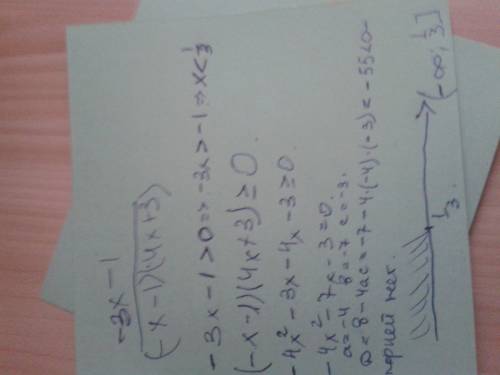 -3x-1
(-x-1)(4x+3)
-3x-1>0 => -3x>-1 => x<1/3
(-x-1)(4x+3)≥0.
-4x²-3x-4x-3≥0.
-4x²-7x-3=0.
a=-4 в=-7 c=-3.
D=в-4ac=-7-4·(-4)·(-3)=-55<0-
корней нет.
1/3. (-∞; 1/3]